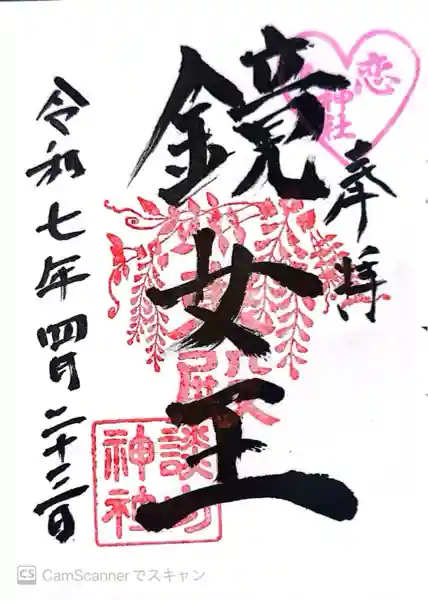 奉拝
恋神社
鏡女王
殿
談山神社
令和七年四月二十三日
CS CamScannerでスキャン